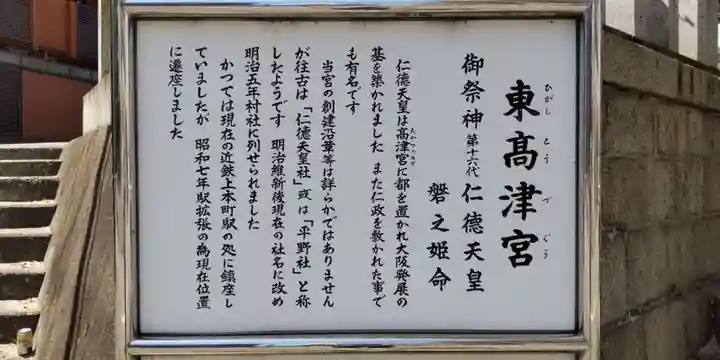 東髙津宮
ひがし とう づ ぐう
御祭神 第十六代 仁徳天皇
磐之姫命
仁徳天皇は高津宮に都を置かれ大阪発展の
基を築かれました また仁政を敷かれた事で
も有名です
当宮の創建沿革等は詳らかではありません
が往古は「仁徳天皇社」或は「平野社」と称
したようです 明治維新後現在の社名に改め
明治五年村社に列せられました
かつては現在の近鉄上本町駅の処に鎮座し
ていましたが 昭和七年駅拡張の為現在位置
に遷座しました